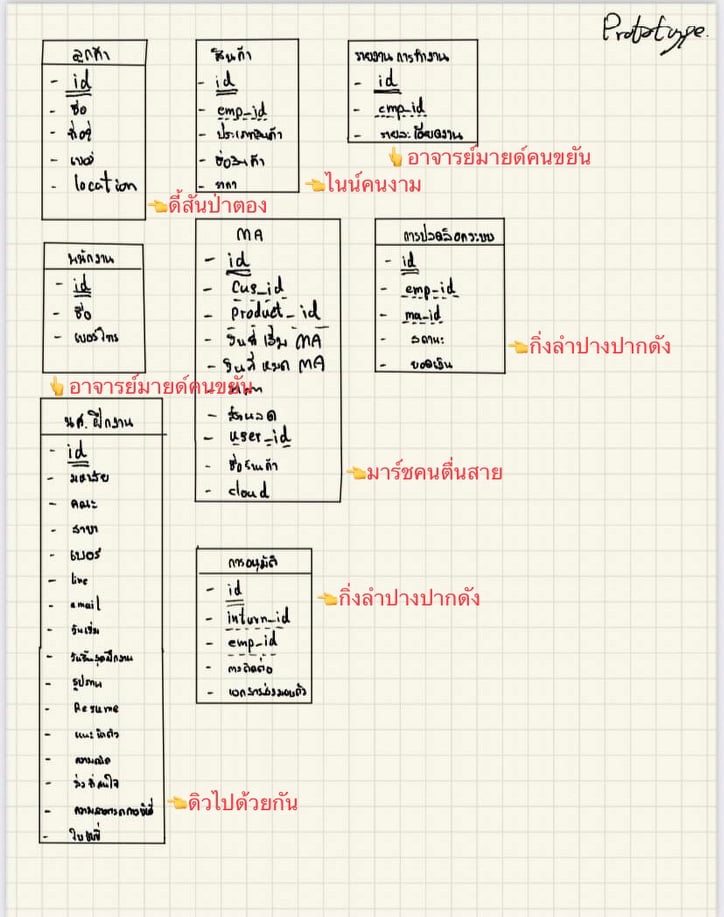 Prototype.
ลูกค้า
- id
- ชื่อ
- ที่อยู่
- เบอร์
- location
👈ดี้สันป่าตอง
สินค้า
- id
- emp_id
- ประเภทสินค้า
- ชื่อสินค้า
- ราคา
👈ไนน์คนงาม
รายงานการทำงาน
- id
- emp_id
- รายละเอียดงาน
👆อาจารย์มายด์คนขยัน
พนักงาน
- id
- ชื่อ
- เบอร์โทร
👆อาจารย์มายด์คนขยัน
MA
- id
- cus_id
- product_id
- วันที่เริ่ม MA
- วันที่หมด MA
- ส่วนลด
- user_id
- ชื่อสินค้า
- cloud
👈มาร์ชคนตื่นสาย
การปลดล็อคระบบ
- id
- emp_id
- ma_id
- สถานะ
- ยอดเงิน
👈กิ่งลำปางปากดัง
นศ.ฝึกงาน
- id
- มหาลัย
- คณะ
- สาขา
- เบอร์
- line
- email
- วันเริ่ม
- วันสิ้นสุดฝึกงาน
- รูปภาพ
- Resume
- แนะนำตัว
- ความถนัด
- สิ่งที่สนใจ
👈ดิวไปด้วยกัน
การอนุมัติ
- id
- inturn_id
- emp_id
- การติดต่อ
- เอกสารส่งมอบตัว
👈กิ่งลำปางปากดัง